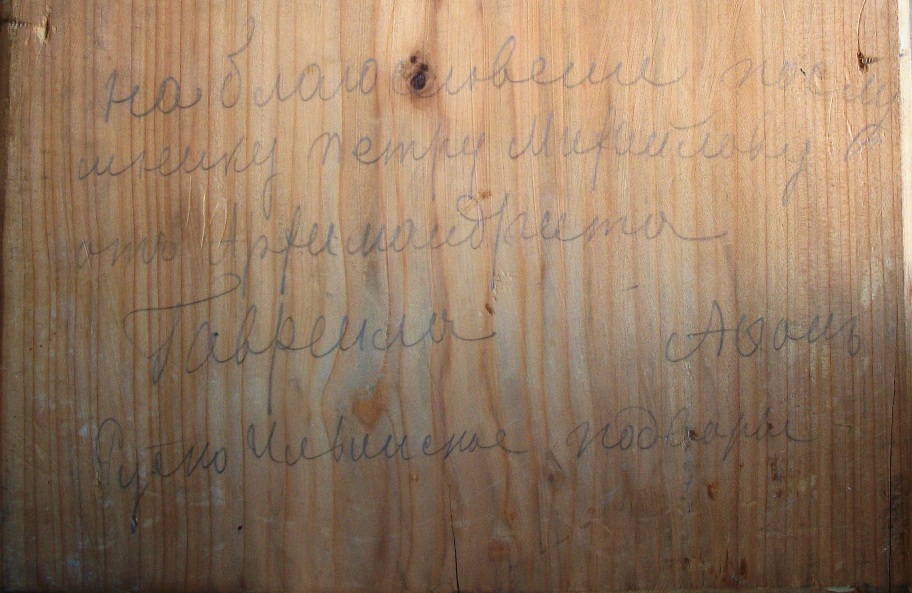 на благословение послу
шнику петру Михайлову
отъ Архимандрита
Гавриила Аѳонъ
Русско Ильинское подворье